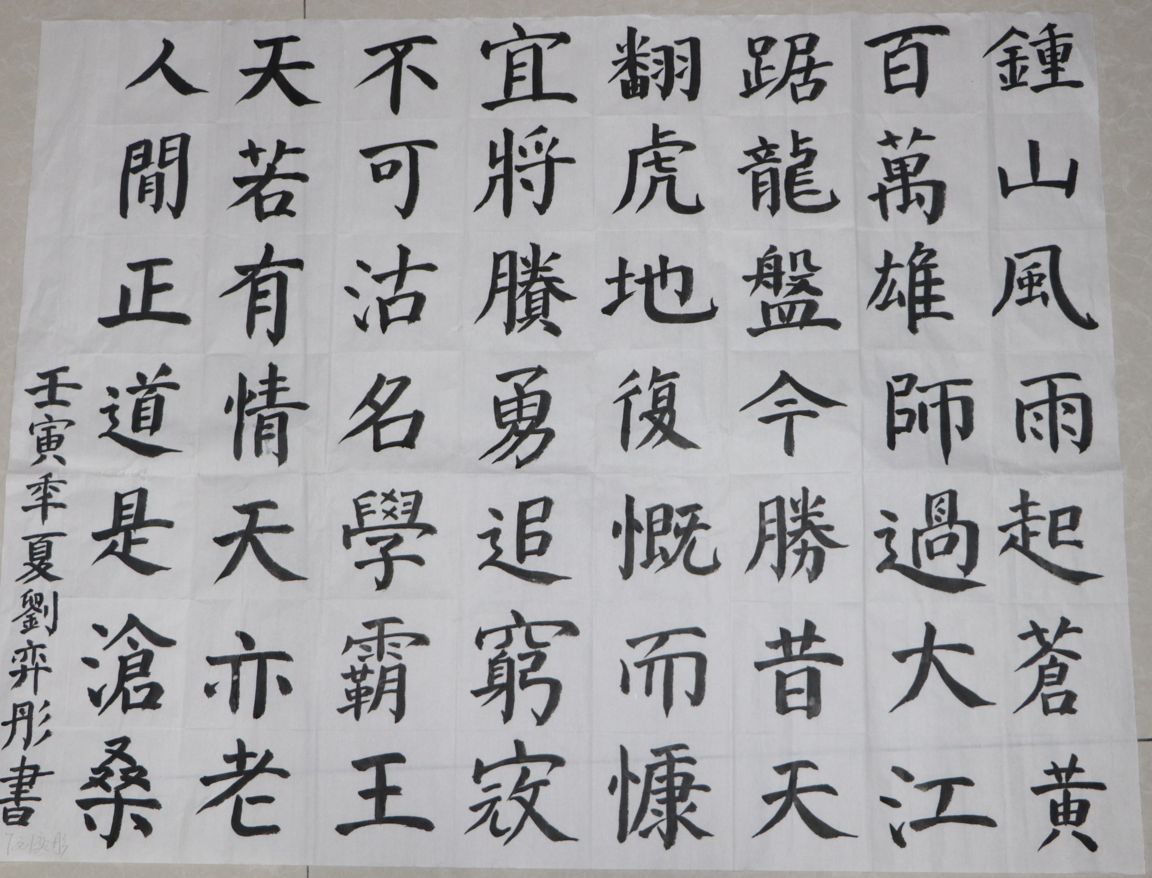 鍾山風雨起蒼黃
百萬雄師過大江
踞龍盤今勝昔天
翻虎地復慨而慷
宜將賸勇追窮寇
不可沽名學霸王
天若有情天亦老
人間正道是滄桑
壬寅年夏劉弈彤書